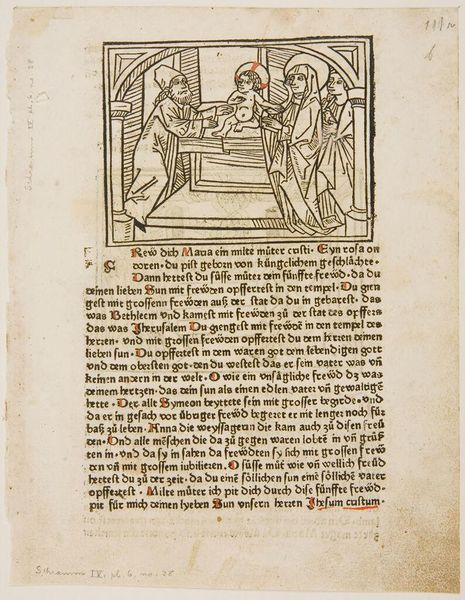 111r
b
Schramm IV pl. 6, no. 28
Rew dich Maria ein milte můter cristi · Eyn rosa on
doren · du pist geborn von küngclichem geschlächte ·
Dann hettest du süsse můter dein fünffte frewd · da du
deinen lieben Sun mit frewden opffertest in den tempel · Du gien
gest mit grossenn frewden auß der stat da du in gebarest · das
was Bethleem vnd kamest mit frewden zů der stat des opffers
das was Jherusalem Du giengest mit frewdē in den tempel des
herren · vnd mit grossen frewden opffertest du dem herren deinen
lieben sun · Du opffertest in dem waren got dem lebendigen gott
vnd dem obersten got · den du westest das er sein vater was vn̄
keinen andern in der welt · O wie ein vnsägliche frewd dz was
deinem hertzen · das dein sun als einen edlen vater vn̄ gewaltigē
hette · Der alt Symeon beyttete sein mit grosser begirde · vnd
da er in gesach vor übriger frewd begeret er nit lenger noch für
baß zů leben · Anna die weyssagerin die kam auch zů disen freü
den · Vnd alle mēschen die da zů gegen waren lobtē in vn̄ grüß
ten in · vnd da sy in sahen da frewdten sy sich mit grossen frew
den vn̄ mit grossem iubilieren · O süsse můt wie vn̄ wellich freüd
hettest du zů der zeit · da du eine söllichen sun eine söllichē vater
opffertest · Milte můter ich pit dich durch dise fünffte frewd ·
pit für mich deinen lyeben Sun vnsern herren Jhesum cristum ·
Schramm IV, pl. 6, no. 28